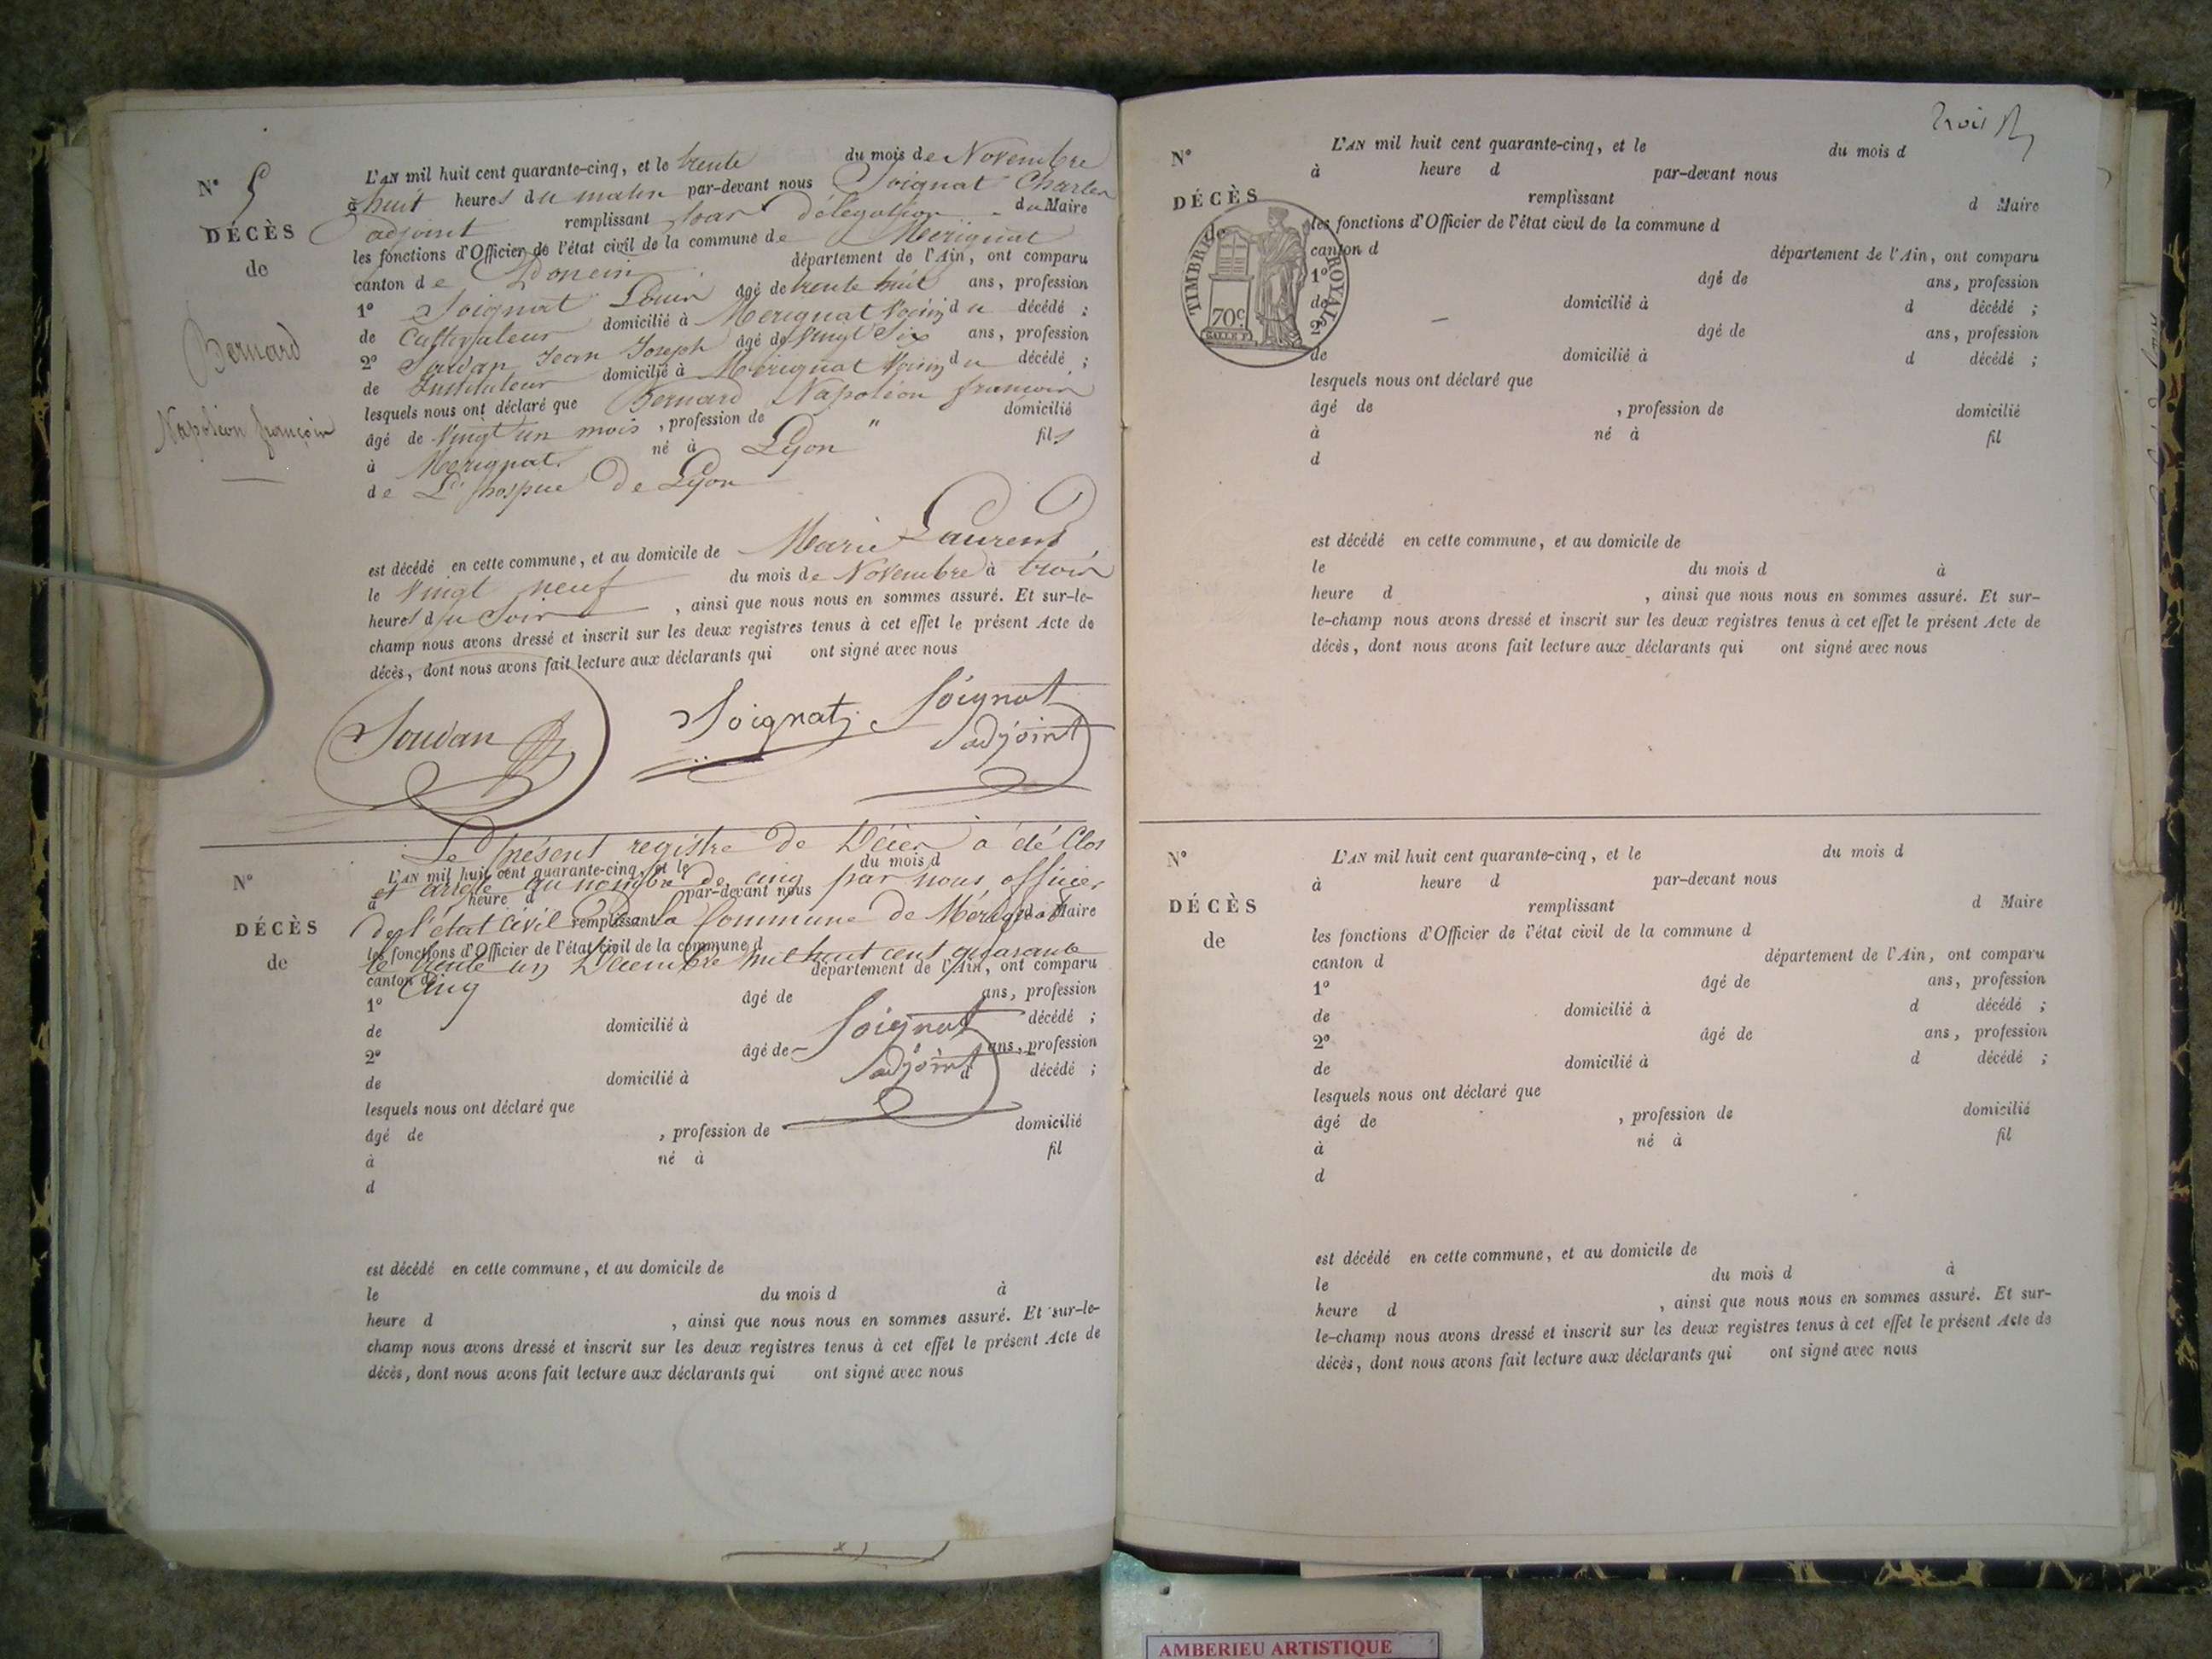 N° 5
DÉCÈS
de
Bernard
Napoléon françois
L'AN mil huit cent quarante-cinq, et le trente du mois de Novembre
à huit heures du matin par-devant nous Soignat Charles
adjoint remplissant par délégation du Maire
les fonctions d'Officier de l'état civil de la commune de Mérignat
canton de Poncin département de l'Ain, ont comparu
1° Soignat Louis âgé de trente huit ans, profession
de Cultivateur domicilié à Merignat Voisin du décédé ;
2° Soudan Jean Joseph âgé de Vingt Six ans, profession
de Instituteur domicilié à Merignat Voisin du décédé ;
lesquels nous ont déclaré que Bernard Napoléon françois
âgé de Vingt un mois , profession de " domicilié
à Merignat né à Lyon fils
de L' hospice De Lyon
est décédé en cette commune, et au domicile de Marie Laurent
le Vingt neuf du mois de Novembre à trois
heures du Soir , ainsi que nous nous en sommes assuré. Et sur-le-
champ nous avons dressé et inscrit sur les deux registres tenus à cet effet le présent Acte de
décès, dont nous avons fait lecture aux déclarants qui ont signé avec nous
Soudan Soignat Soignat
adjoint
Le présent registre de Décès a été Clos
et arrêté au nombre de cinq par nous officier
de l'état Civil De La Commune de Mérignat
le trente un Décembre mil huit cent quarante
Cinq
Soignat
adjoint
N°
DÉCÈS
de
L'AN mil huit cent quarante-cinq, et le du mois d
à heure d par-devant nous
remplissant d Maire
les fonctions d'Officier de l'état civil de la commune d
canton d département de l'Ain, ont comparu
1° âgé de ans, profession
de domicilié à décédé ;
2° âgé de ans, profession
de domicilié à d décédé ;
lesquels nous ont déclaré que
âgé de , profession de domicilié
à né à fil
d
est décédé en cette commune, et au domicile de
le du mois d à
heure d , ainsi que nous nous en sommes assuré. Et sur-le-
champ nous avons dressé et inscrit sur les deux registres tenus à cet effet le présent Acte de
décès, dont nous avons fait lecture aux déclarants qui ont signé avec nous
trois
N°
DÉCÈS
de
TIMBRE ROYAL
70c
L'AN mil huit cent quarante-cinq, et le du mois d
à heure d par-devant nous
remplissant d Maire
les fonctions d'Officier de l'état civil de la commune d
canton d département de l'Ain, ont comparu
1° âgé de ans, profession
de domicilié à d décédé ;
2° âgé de ans, profession
de domicilié à d décédé ;
lesquels nous ont déclaré que
âgé de , profession de domicilié
à né à fil
d
est décédé en cette commune, et au domicile de
le du mois d à
heure d , ainsi que nous nous en sommes assuré. Et sur-
le-champ nous avons dressé et inscrit sur les deux registres tenus à cet effet le présent Acte de
décès, dont nous avons fait lecture aux déclarants qui ont signé avec nous
N°
DÉCÈS
de
L'AN mil huit cent quarante-cinq, et le du mois d
à heure d par-devant nous
remplissant d Maire
les fonctions d'Officier de l'état civil de la commune d
canton d département de l'Ain, ont comparu
1° âgé de ans, profession
de domicilié à d décédé ;
2° âgé de ans, profession
de domicilié à d décédé ;
lesquels nous ont déclaré que
âgé de , profession de domicilié
à né à fil
d
est décédé en cette commune, et au domicile de
le du mois d à
heure d , ainsi que nous nous en sommes assuré. Et sur-
le-champ nous avons dressé et inscrit sur les deux registres tenus à cet effet le présent Acte de
décès, dont nous avons fait lecture aux déclarants qui ont signé avec nous
AMBERIEU ARTISTIQUE